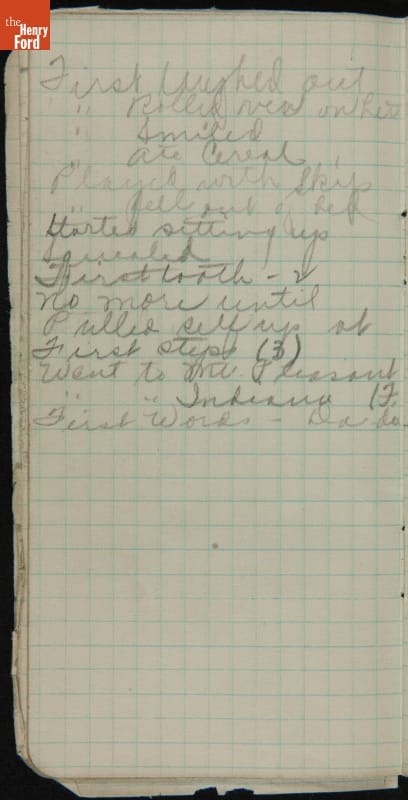 the
Henry
Ford
First laughed out
" Rolled over on her
" Smiled
" ate Cereal
Played with Skip
" fell out of bed
Started sitting up
Squealed
First tooth - 2
No more until
Pulled self up at
First steps (3)
Went to Mt. Pleasant
" " Indiana (F.
First Words - Da da